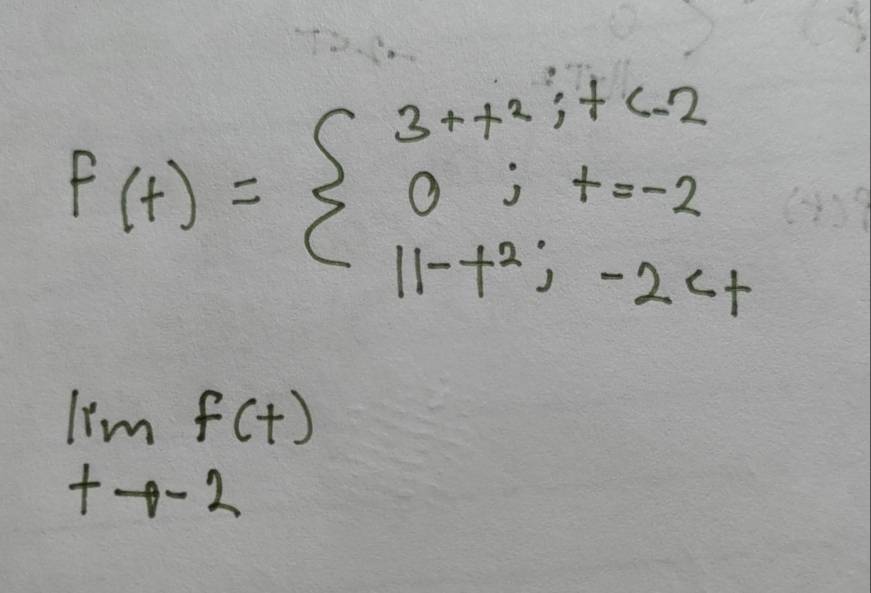 f(t) = { 3+t² ; t<-2
0 ; t=-2
11-t² ; -2<t
lim f(t)
t→-2